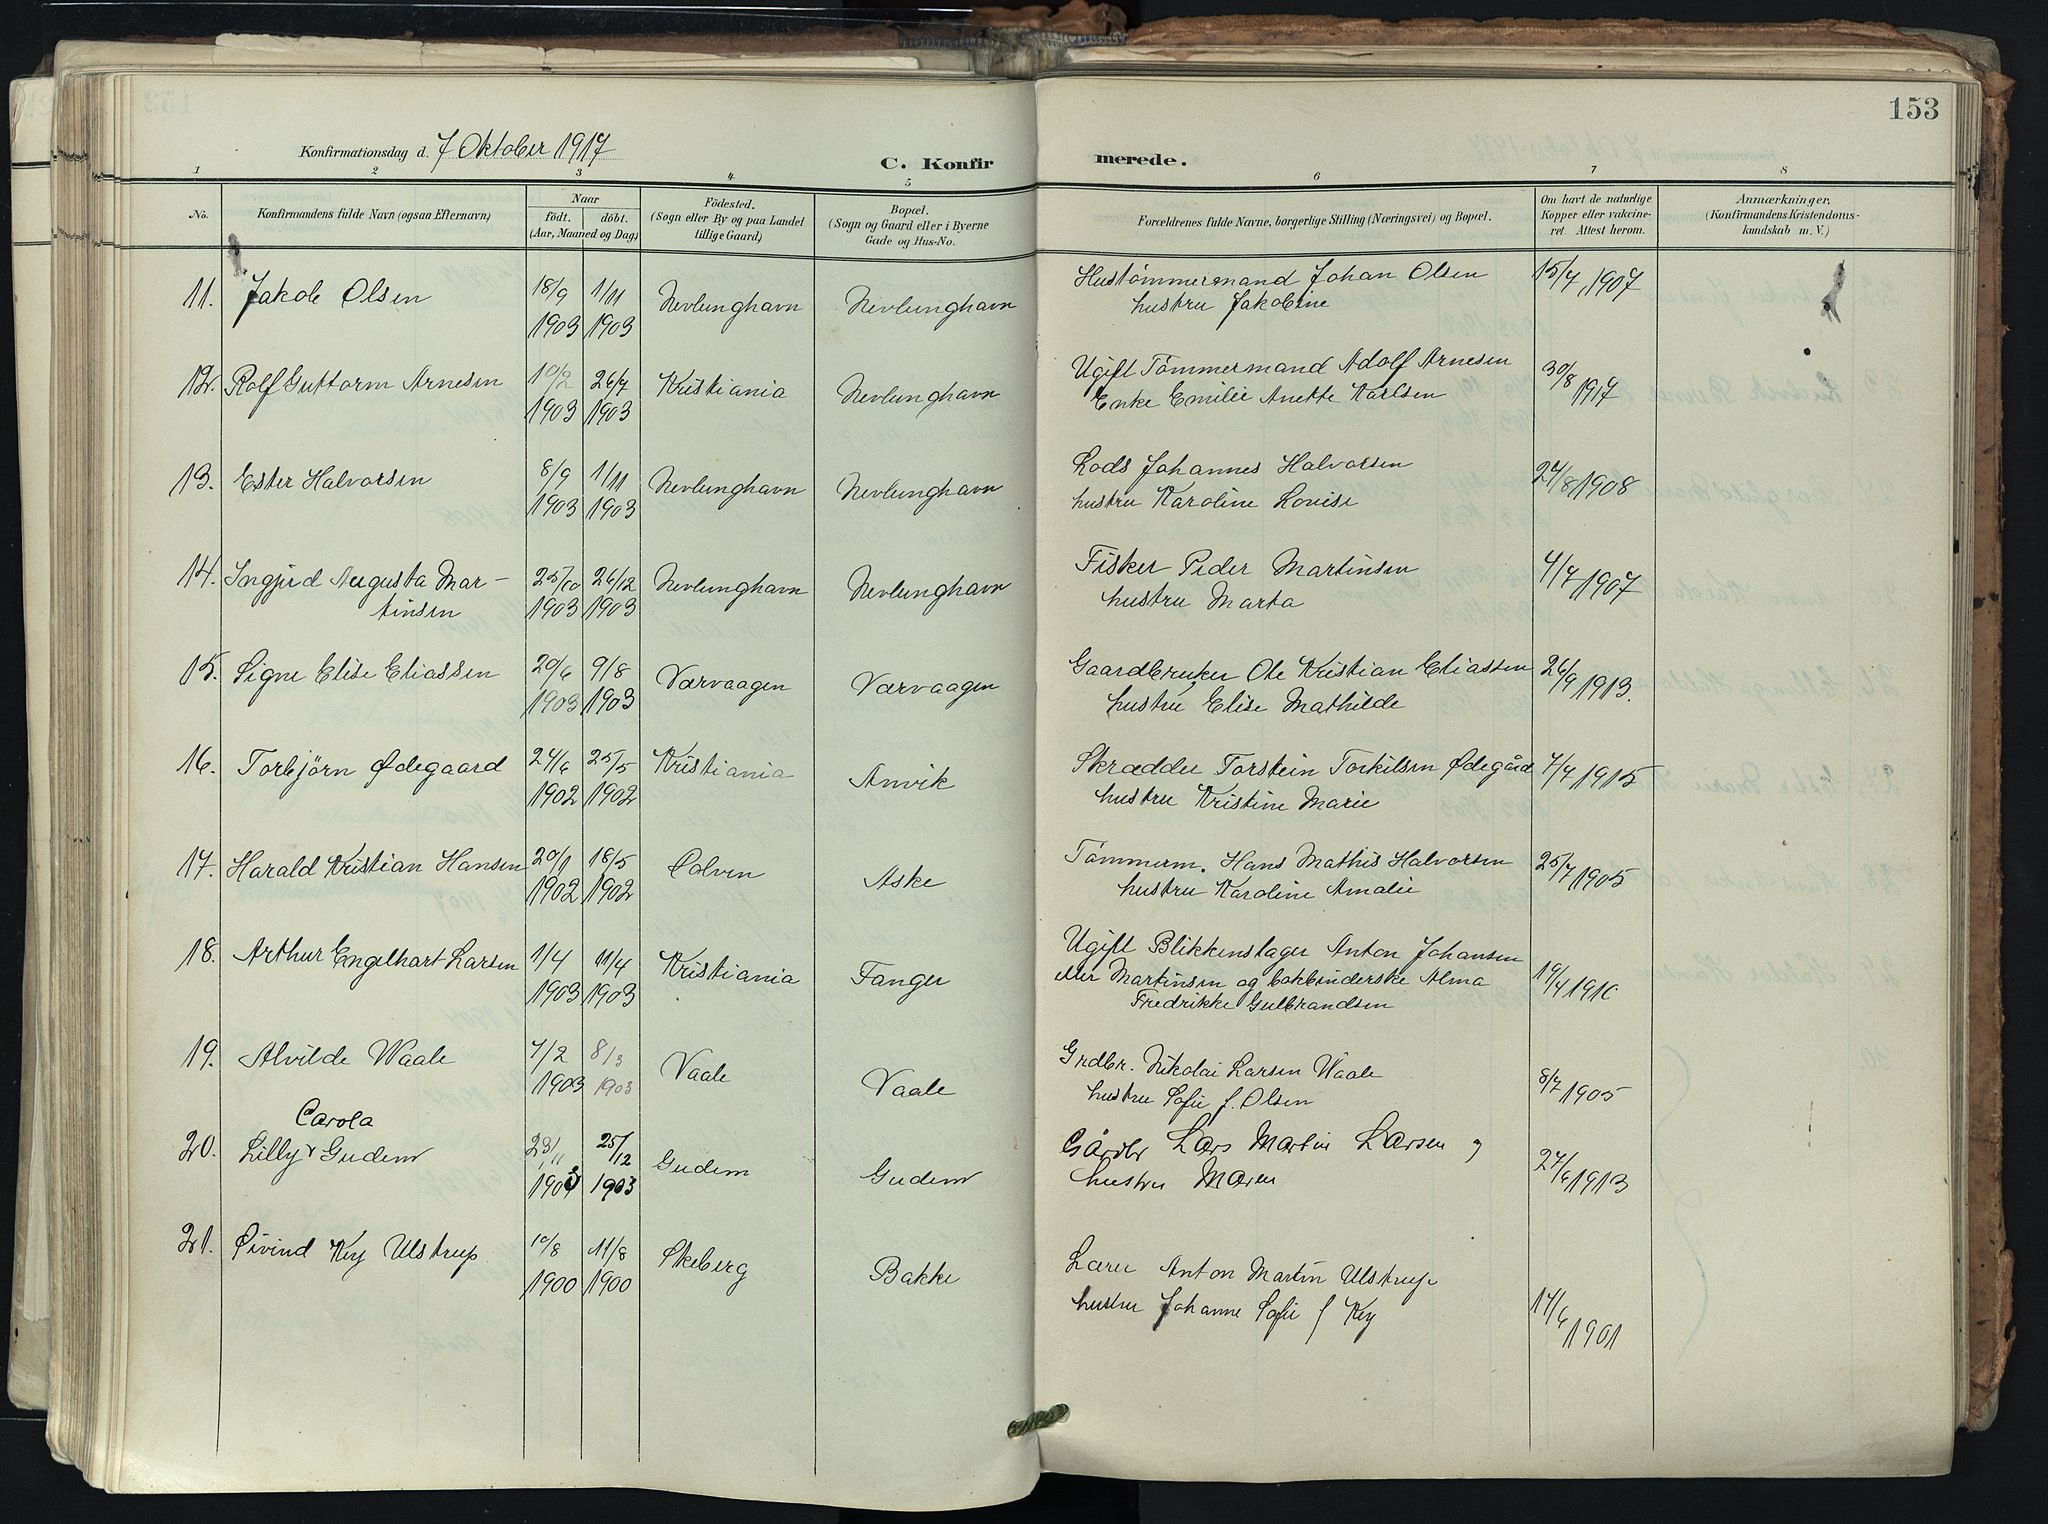 153
Konfirmationsdag d. 7 Oktober 1917
C. Konfirmerede.
1 2 3 4 5 6 7 8
No.
Konfirmandens fulde Navn (ogsaa Efternavn)
Naar
födt. döbt.
(Aar, Maaned og Dag)
Födested.
(Sogn eller By og paa Landet
tillige Gaard)
Bopæl.
(Sogn og Gaard eller i Byerne
Gade og Hus-No.
Forældrenes fulde Navne, borgerlige Stilling (Næringsvei) og Bopæl.
Om havt de naturlige
Kopper eller vakcine-
ret. Attest herom.
Anmærkninger,
(Konfirmandens Kristendoms-
kundskab m. V.)
11. Jakob Olsen 18/9 1903 1/11 1903 Nevlunghavn Nevlunghavn Hustømmermand Johan Olsen 15/7 1907
hustru Jakobine
12. Rolf Guttorm Arnesen 10/2 1903 26/7 1903 Kristiania Nevlunghavn Ugift Tømmermand Adolf Arnesen 30/8 1917
Enke Emilie Anette Karlsen
13. Ester Halvorsen 8/9 1903 1/11 1903 Nevlunghavn Nevlunghavn Lods Johannes Halvorsen 24/8 1908
hustru Karoline Lovise
14. Ingjerd Augusta Mar- 25/10 1903 26/12 1903 Nevlunghavn Nevlunghavn Fisker Peder Martinsen 4/7 1907
tinsen hustru Marta
15. Signe Elise Eliassen 20/6 1903 9/8 1903 Varvaagen Varvaagen Gaardbruker Ole Kristian Eliassen 26/9 1913.
hustru Elise Mathilde
16. Torbjörn Ødegaard 24/6 1902 25/5 1902 Kristiania Anvik Skrædder Torstein Torkilsen Ødegård 7/7 1915
hustru Kristine Marie
17. Harald Kristian Hansen 20/1 1902 18/5 1902 Colvin Aske Tömmerm. Hans Mathis Halvorsen 25/7 1905
hustru Karoline Amalie
18. Arthur Engelhart Larsen 1/4 1903 11/4 1903 Kristiania Tanger Ugift Blikkenslager Anton Johansen 19/4 1910
eller Martinsen og bokbinderske Alma
Fredrikke Gulbrandsen
19. Alvilde Waale 7/2 1903 8/3 1903 Vaale Vaale Grdbr. Nikolai Larsen Waale 8/7 1905
hustru Sofie f. Olsen
Carola
20. Lilly Gudem 23/11 1903 25/12 1903 Gudem Gudem Gårdbr Lars Martin Larsen og 27/6 1913
hustru Maren
21. Øivind Key Ulstrup 10/8 1900 11/8 1900 Skeberg Bakke Lærer Anton Martin Ulstrup 17/6 1901
hustru Johanne Sofie f Key